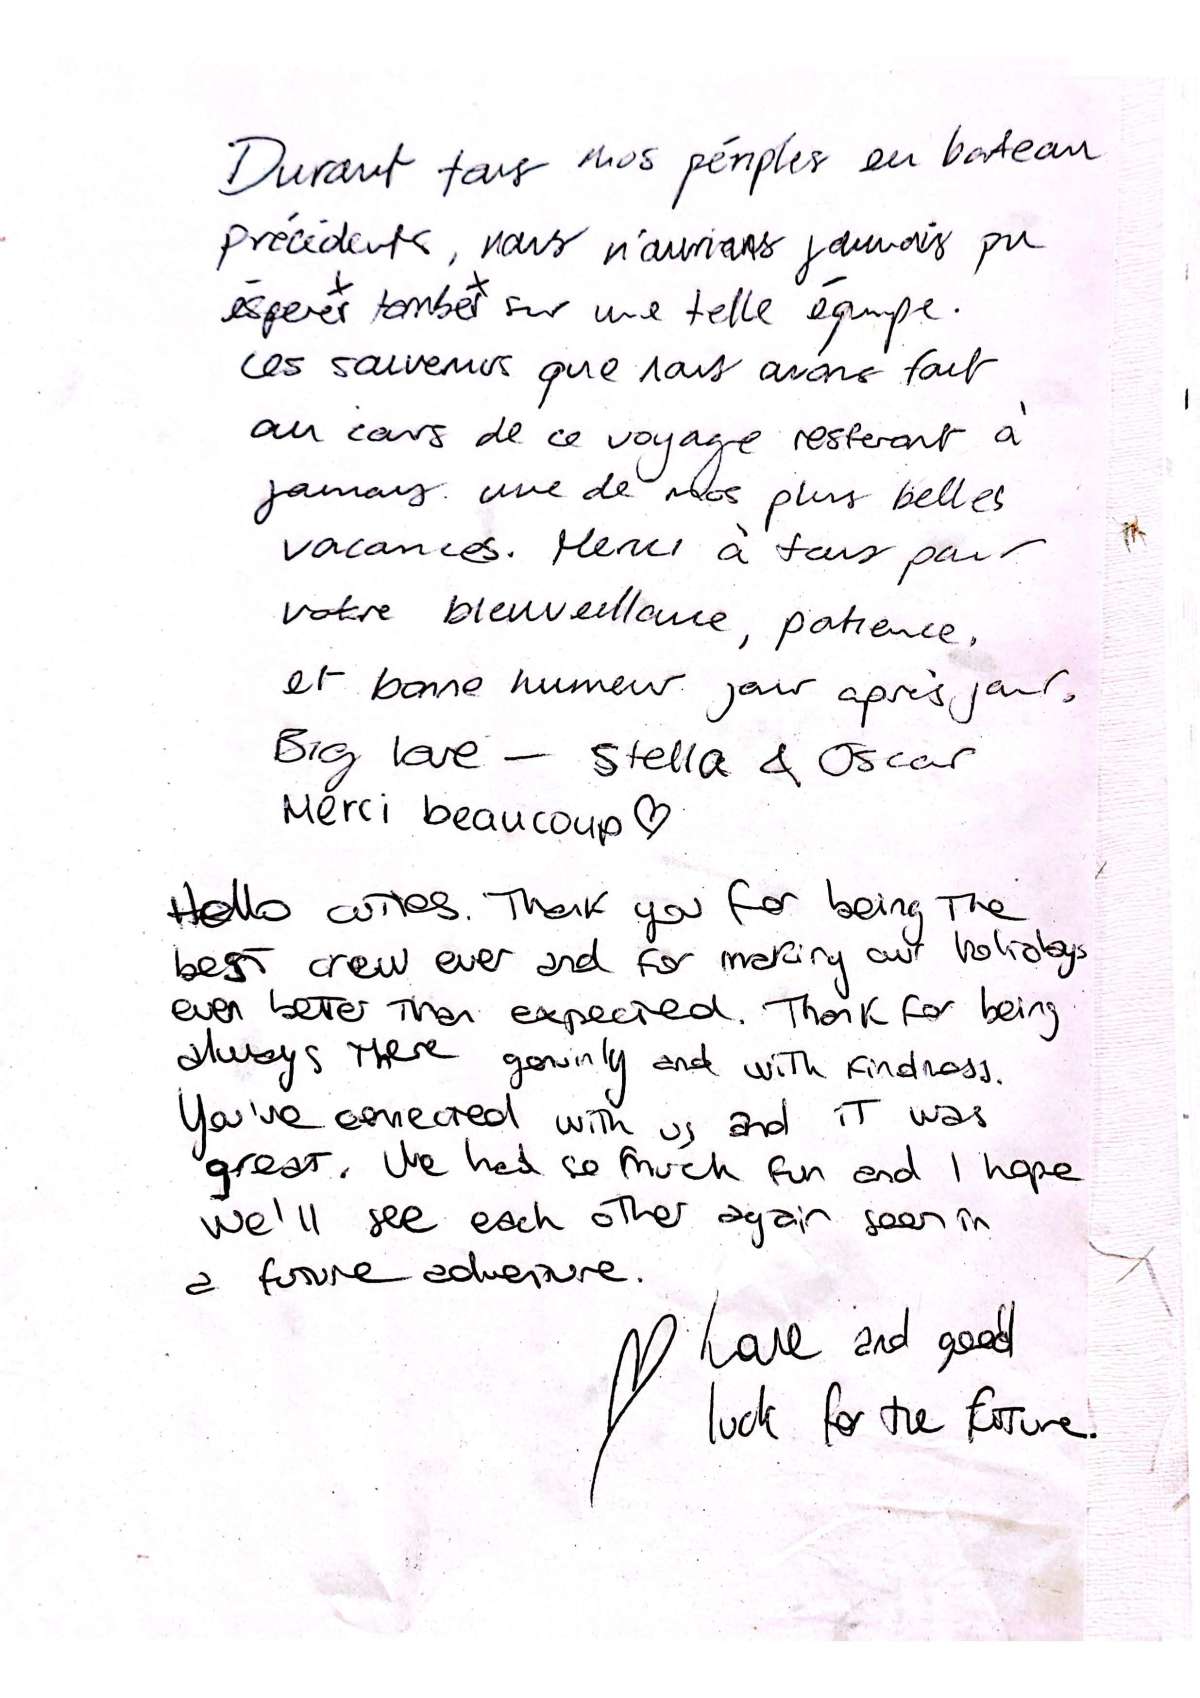 Durant tous nos périples en bateau
précédents, nous n'aurions jamais pu
éspérer tomber sur une telle équipe.
Les souvenirs que nous avons fait
au cours de ce voyage resteront à
jamais une de nos plus belles
vacances. Merci à tous pour
votre bienveillance, patience,
et bonne humeur jour après jour.
Big love — Stella & Oscar
Merci beaucoup ♡
Hello cuties. Thank you for being the
best crew ever and for making our holidays
even better than expected. Thank for being
always there genuinly and with kindness.
You've conected with us and it was
great. We had so much fun and I hope
we'll see each other again soon in
a future adventure.
♡ Love and good
luck for the future.